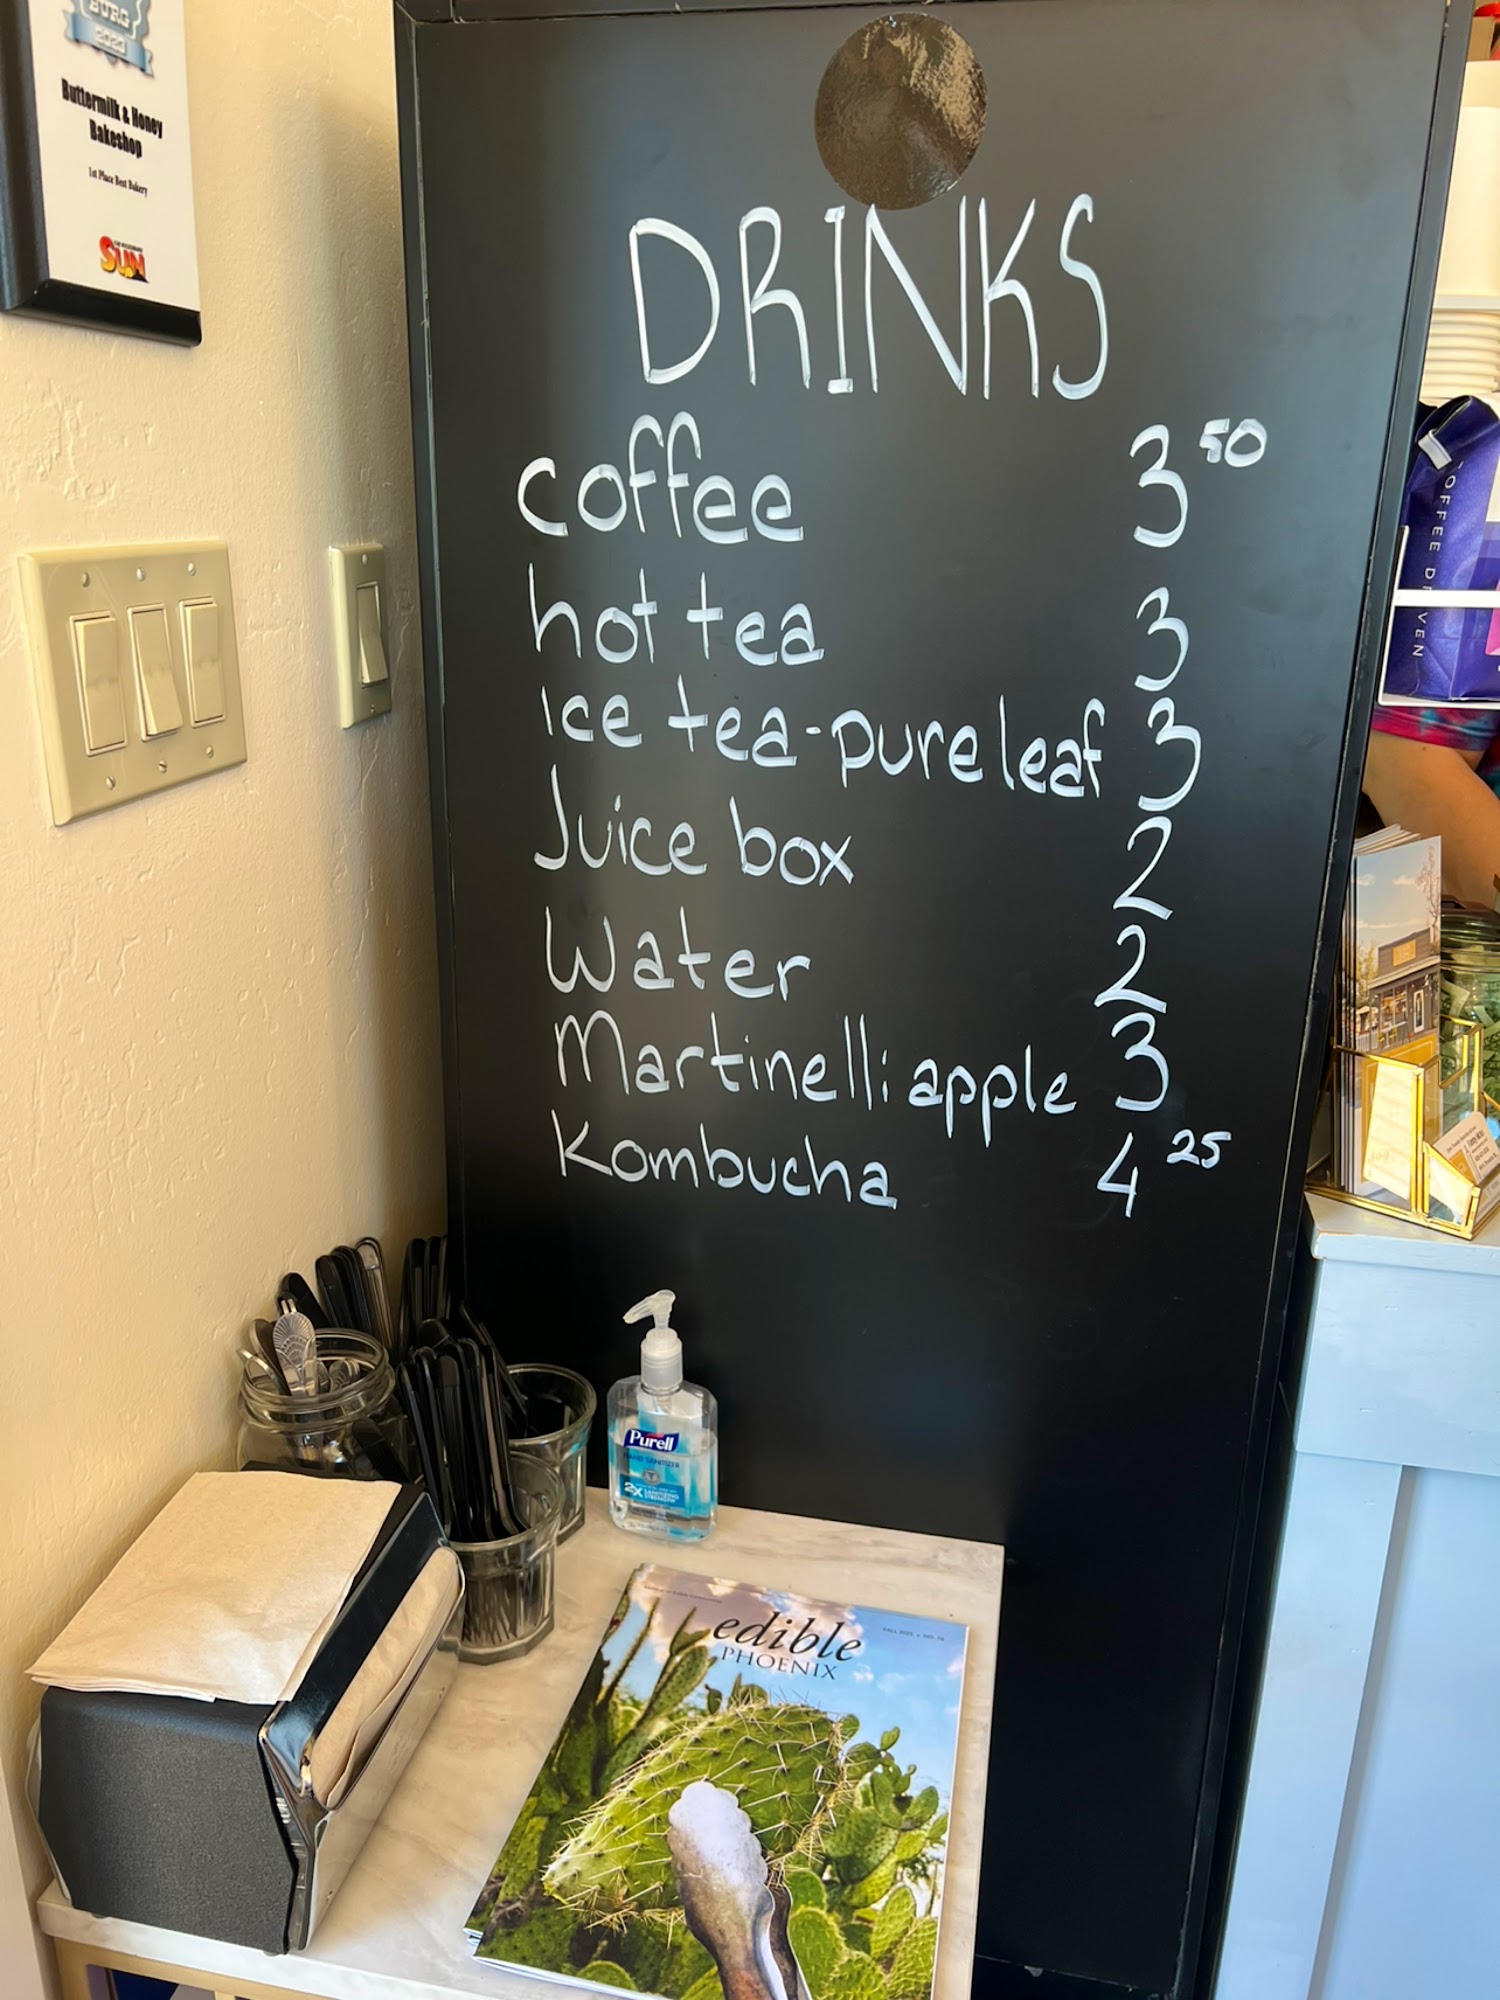 BURG
2023
Buttermilk & Honey
Bakeshop
1st Place Best Bakery
SUN
DRINKS
coffee 3 50
hot tea 3
ice tea - pure leaf 3
Juice box 2
Water 2
Martinelli apple 3
Kombucha 4 25
COFFEE DRIVEN
Purell
HAND SANITIZER
2X SANITIZING
STRENGTH
edible
PHOENIX